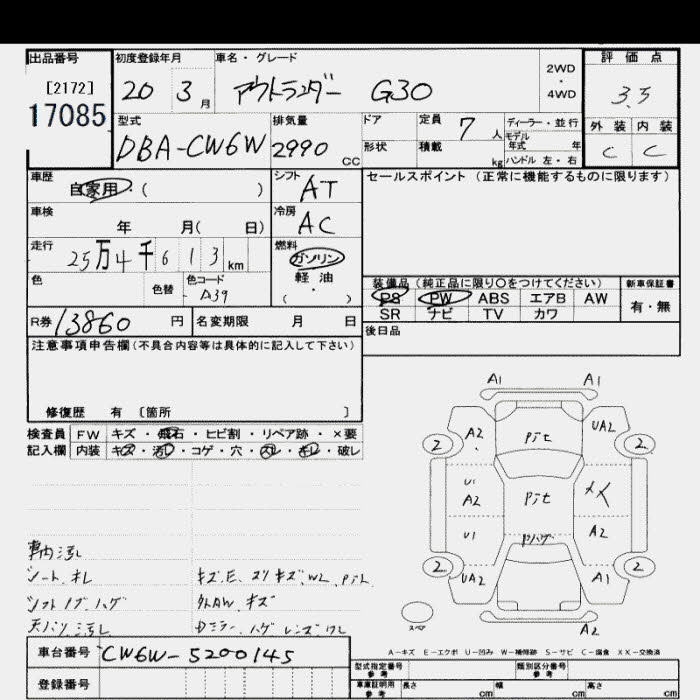 出品番号 初度登録年月 車名・グレード 評価点
[2172] 20 3月 アウトランダー G30 2WD・4WD 3.5
17085
型式 排気量 ドア 定員 7人 ディーラー・並行 外装 内装
DBA-CW6W 2990cc 形状 積載 kg モデル年式 年 ハンドル 左・右 C C
車歴 自家用・( ) シフト AT セールスポイント(正常に機能するものに限ります)
車検 年 月( 日) 冷房 AC
走行 25万4千613km 燃料 ガソリン 軽油・( )
色 色替 色コード A39
装備品(純正品に限り○をつけてください) 新車保証書
PS PW ABS エアB AW 有・無
SR ナビ TV カワ
R券 13860円 名変期限 月 日 後日品
注意事項申告欄(不具合内容等は具体的に記入して下さい)
修復歴 有 〔箇所 〕
検査員 FW キズ・飛石・ヒビ割・リペア跡・×要
記入欄 内装 キズ・汚レ・コゲ・穴・スレ・キレ・破レ
A1 A1
A2 Pitt UA2
2 2
U1 A2 Pitt XX
U1 Pハゲ A2
2 UA2 A1 2
スペア A2
車内汚レ
シート、キレ キズ、E、スリキズ、W2、Pitt
シフトノブ、ハゲ 外AW、キズ
天バリ、汚レ Dミラー、ハゲ
車台番号 CW6W-5200145
A-キズ E-エクボ U-凹み W-補修跡 S-サビ C-腐食 XX-交換済
登録番号
型式指定番号 参考 類別区分番号 参考
車庫証明用 参考 長さ cm 幅 cm 高さ cm